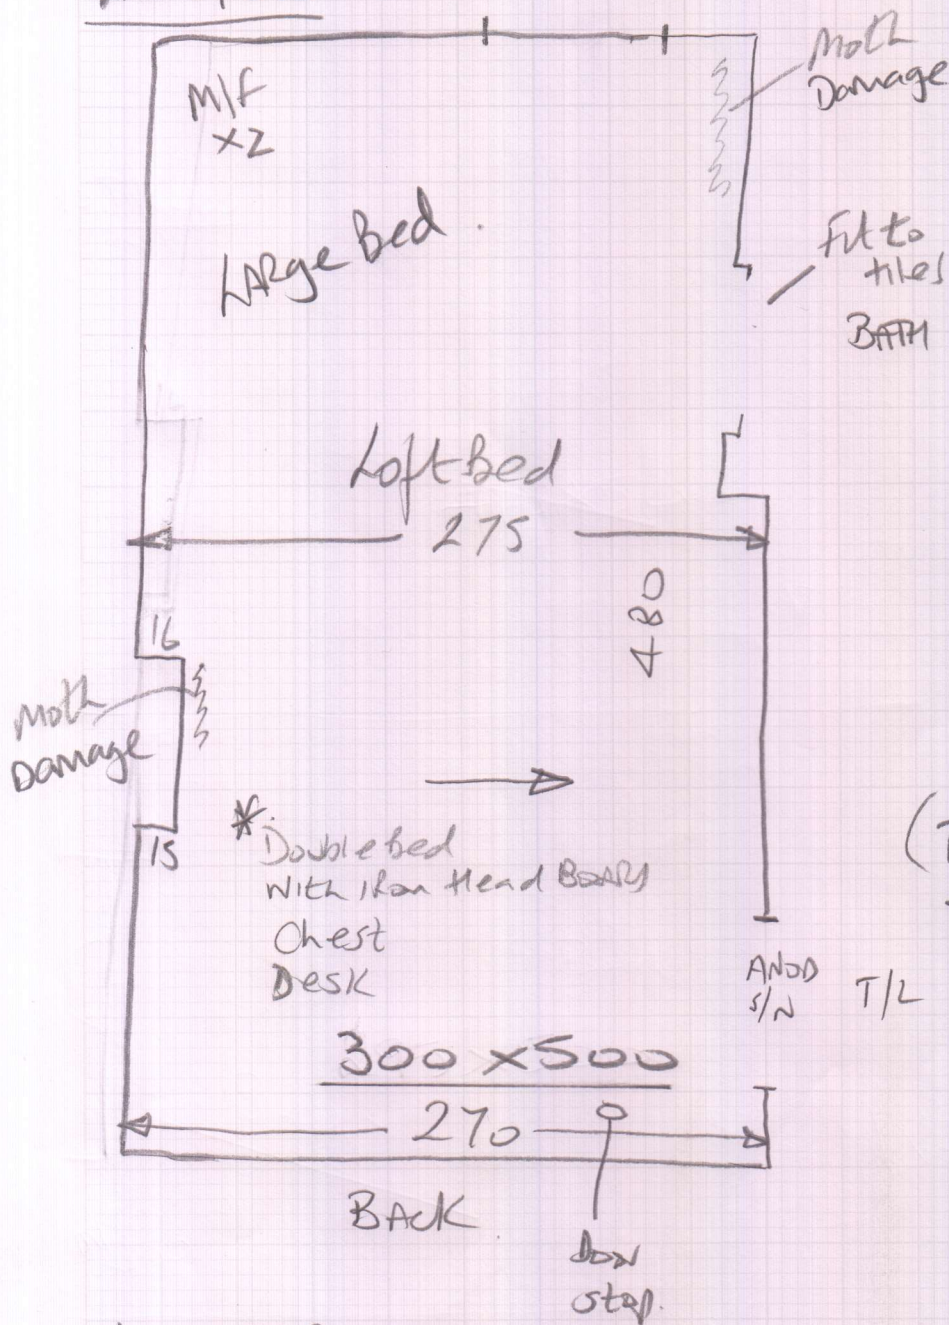 M/F
X2
Moth
Damage
LARge Bed.
Fit to
tiles
BATH
Loft Bed
275
480
16
Moth
Damage
15
*
Double bed
With iRon Head BOARD
Chest
Desk
ANOD
S/N
T/L
300 x 500
270
BACK
Door
stop.